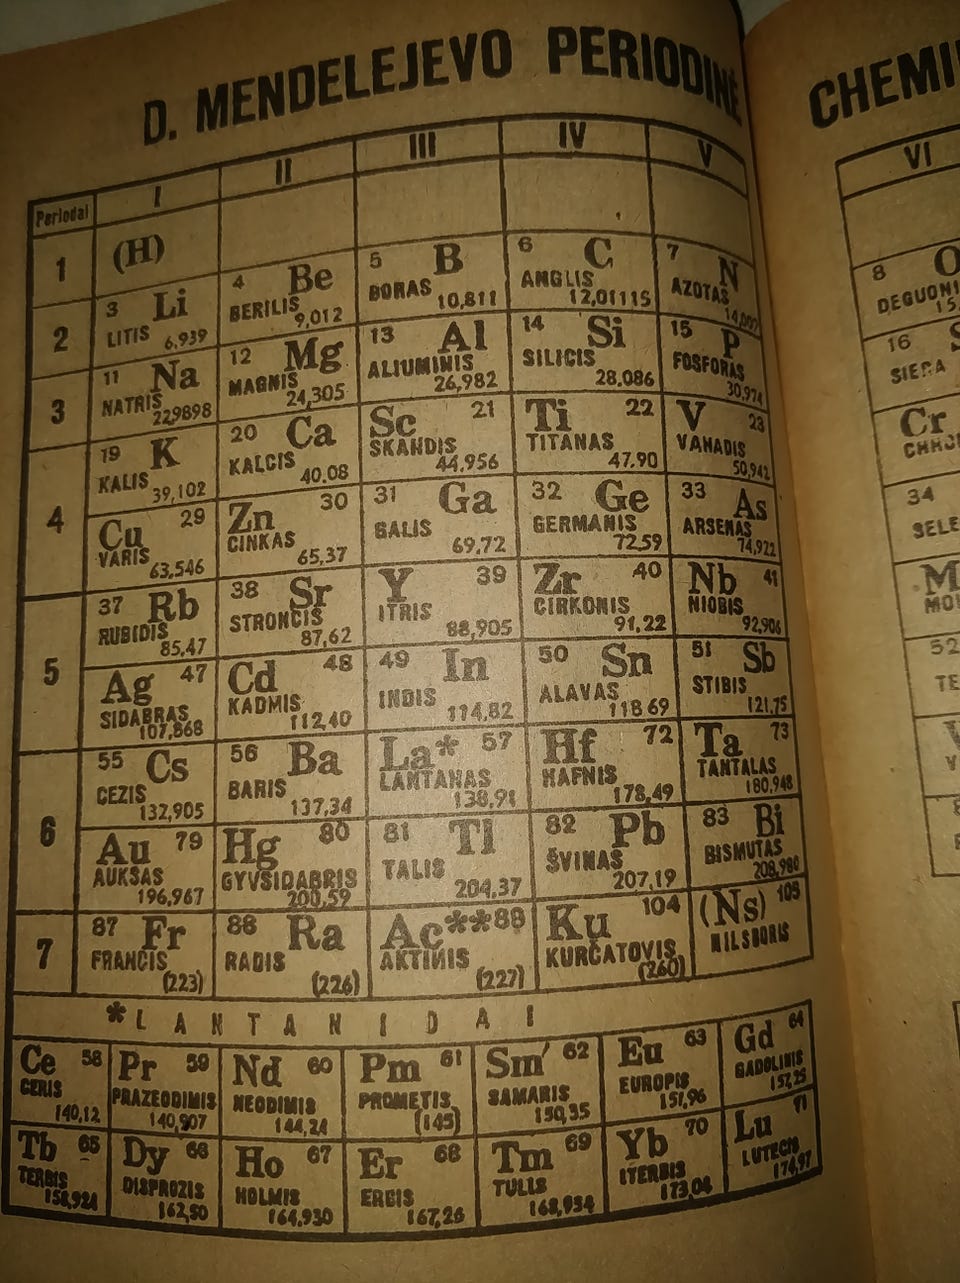 D. MENDELEJEVO PERIODINĖ
Periodai I II III IV V
1 (H)
2
3 Li LITIS 6,939
4 Be BERILIS 9,012
5 B BORAS 10,811
6 C ANGLIS 12,01115
7 N AZOTAS 14,007
3
11 Na NATRIS 22,9898
12 Mg MAGNIS 24,305
13 Al ALIUMINIS 26,982
14 Si SILICIS 28,086
15 P FOSFORAS 30,974
4
19 K KALIS 39,102
20 Ca KALCIS 40.08
Sc 21 SKANDIS 44,956
Ti 22 TITANAS 47.90
V 23 VANADIS 50,942
Cu 29 VARIS 63,546
Zn 30 CINKAS 65,37
31 Ga GALIS 69,72
32 Ge GERMANIS 72,59
33 As ARSENAS 74,922
5
37 Rb RUBIDIS 85,47
38 Sr STRONCIS 87,62
Y 39 ITRIS 88,905
Zr 40 CIRKONIS 91,22
Nb 41 NIOBIS 92,906
Ag 47 SIDABRAS 107,868
Cd 48 KADMIS 112,40
49 In INDIS 114,82
50 Sn ALAVAS 118 69
51 Sb STIBIS 121,75
6
55 Cs CEZIS 132,905
56 Ba BARIS 137,34
La* 57 LANTANAS 138,91
Hf 72 HAFNIS 178,49
Ta 73 TANTALAS 180,948
Au 79 AUKSAS 196,967
Hg 80 GYVSIDABRIS 200,59
81 Tl TALIS 204,37
82 Pb ŠVINAS 207,19
83 Bi BISMUTAS 208,980
7
87 Fr FRANCIS (223)
88 Ra RADIS (226)
Ac** 89 AKTINIS (227)
Ku 104 KURČATOVIS (260)
(Ns) 105 NILSBORIS
*LANTANIDAI
Ce 58 CERIS 140,12
Pr 59 PRAZEODIMIS 140,907
Nd 60 NEODIMIS 144,24
Pm 61 PROMETIS (145)
Sm 62 SAMARIS 150,35
Eu 63 EUROPIS 151,96
Gd 64 GADOLINIS 157,25
Tb 65 TERBIS 158,924
Dy 66 DISPROZIS 162,50
Ho 67 HOLMIS 164,930
Er 68 ERBIS 167,26
Tm 69 TULIS 168,934
Yb 70 ITERBIS 173,04
Lu 71 LUTECIS 174,97
VI
8
16 SIERA
Cr
34
52